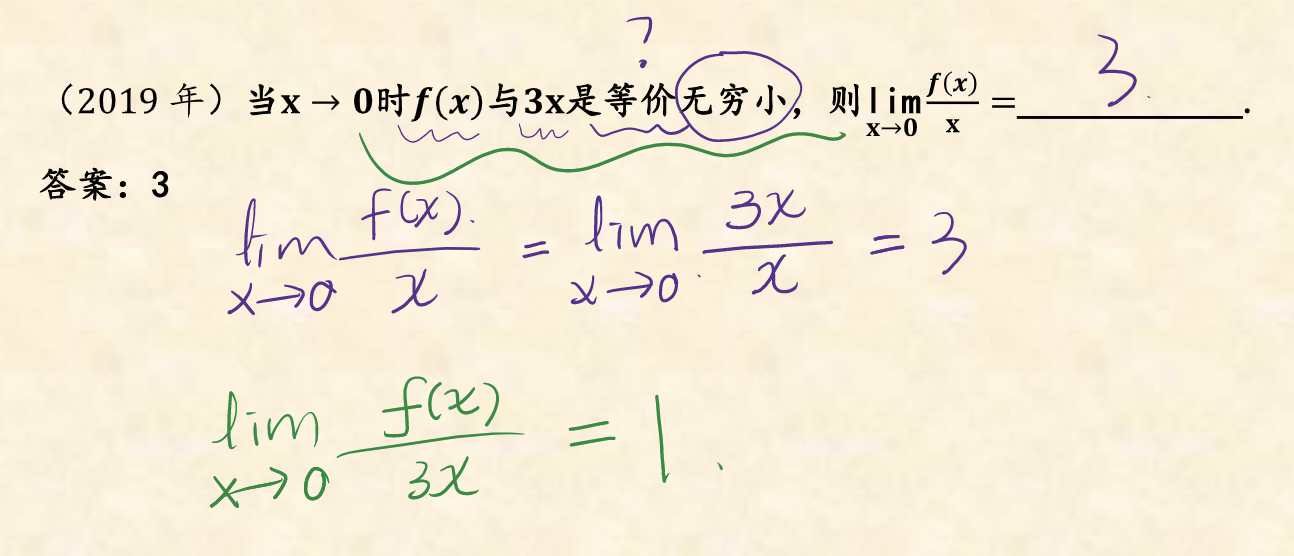 ?
(2019 年) 当x → 0时f(x)与3x是等价无穷小, 则lim x→0 f(x)/x = 3.
答案: 3
lim x→0 f(x)/x = lim x→0 3x/x = 3
lim x→0 f(x)/3x = 1.